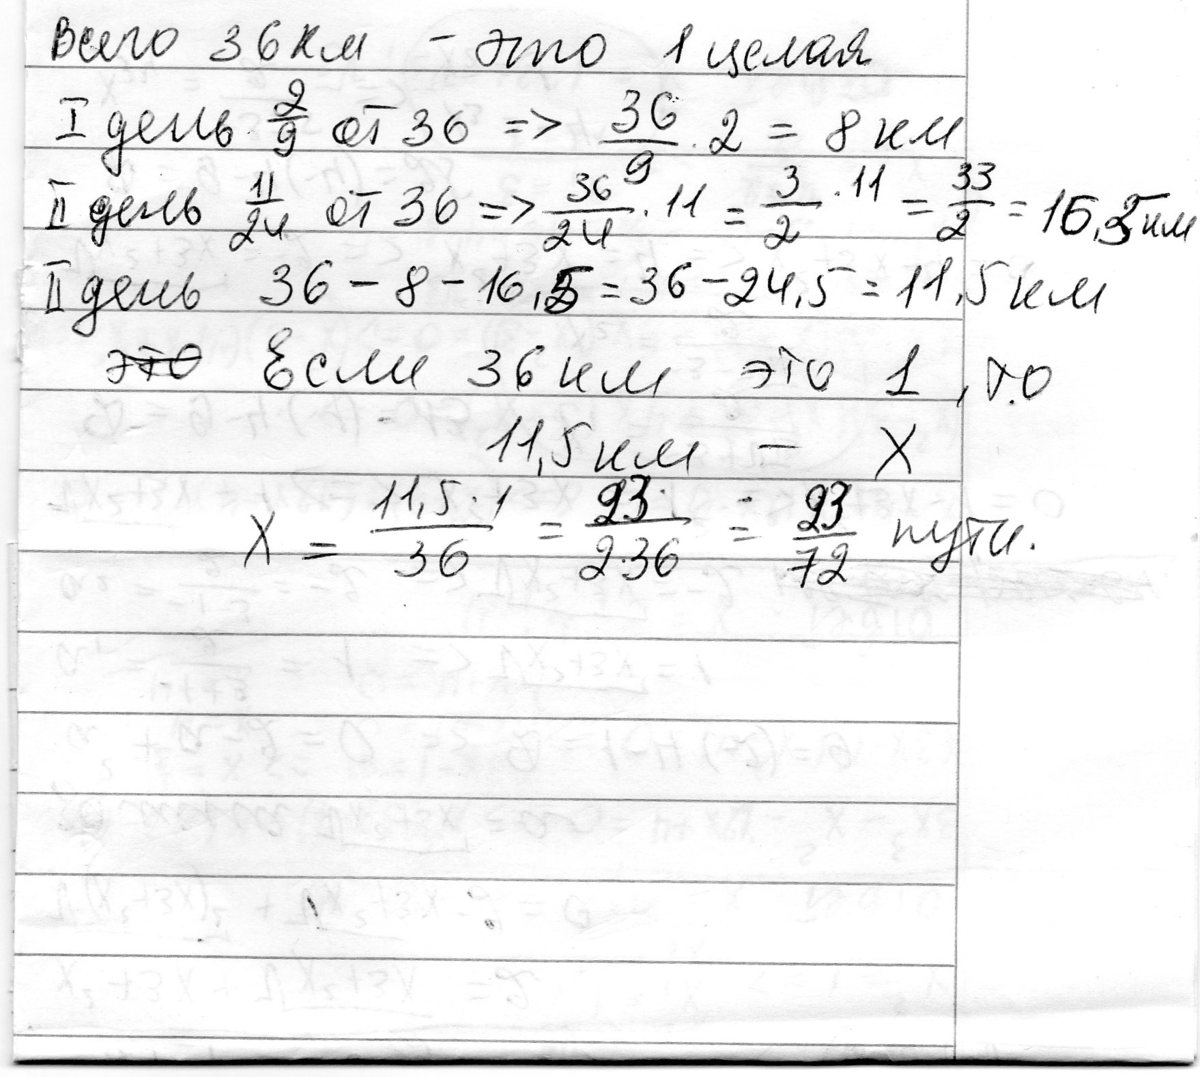 Всего 36 км - это 1 целая
I день 2/9 от 36 => 36/9 · 2 = 8 км
II день 11/24 от 36 => 36/24 · 11 = 3/2 · 11 = 33/2 = 16,5 км
II день 36 - 8 - 16,5 = 36 - 24,5 = 11,5 км
это Если 36 км это 1, то
11,5 км - X
X = 11,5 · 1/36 = 23/2·36 = 23/72 пути.